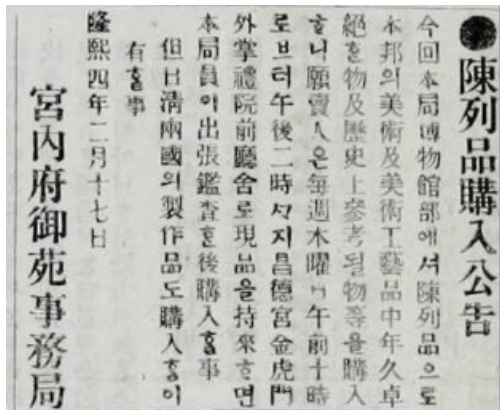 ●陳列品購入公告
今回本局博物館部에셔陳列品으로
本邦의美術及美術工藝品中年久卓
絕ᄒᆞᆫ物及歷史上參考될物等을購入
ᄒᆞ니願賣人은每週木曜日午前十時
로브터午後二時ᄭᆞ지昌德宮金虎門
外掌禮院前廳舍로現品을持來ᄒᆞ면
本局員이出張鑑査ᄒᆞᆫ後購入ᄒᆞᆷ事
但日淸兩國의製作品도購入ᄒᆞᆷ이
有ᄒᆞᆯ事
隆熙四年二月十七日
宮內府御苑事務局